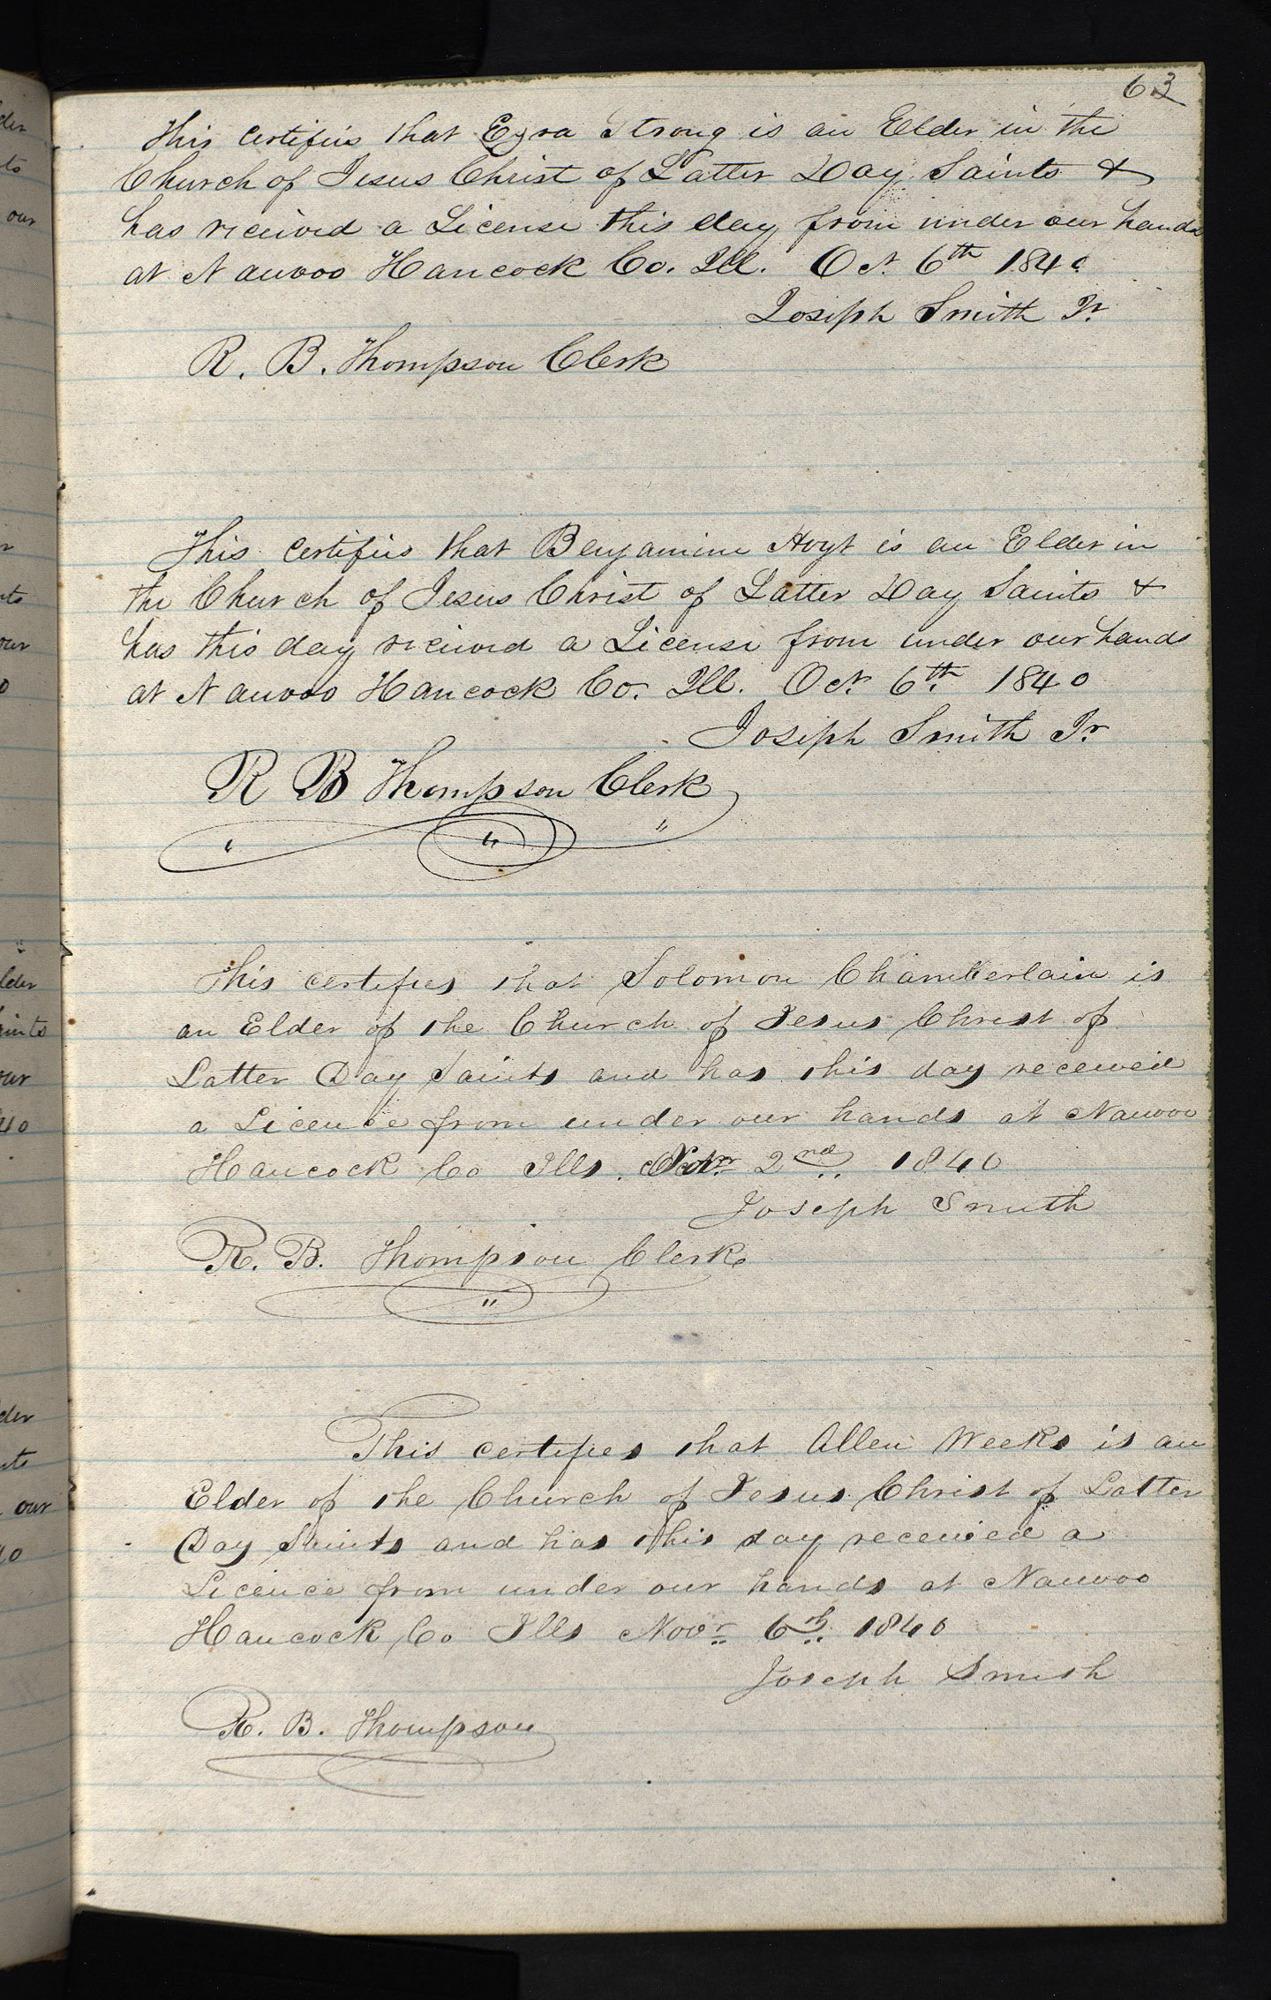 63
This certifies that Ezra Strong is an Elder in the
Church of Jesus Christ of Latter Day Saints &
has received a License this day from under our hands
at Nauvoo Hancock Co. Ill. Oct. 6th 1840
Joseph Smith Jr.
R. B. Thompson Clerk
This certifies that Benjamine Hoyt is an Elder in
the Church of Jesus Christ of Latter Day Saints &
has this day received a License from under our hands
at Nauvoo Hancock Co. Ill. Oct. 6th 1840
Joseph Smith Jr
R B Thompson Clerk
This certifies that Solomon Chamberlain is
an Elder of the Church of Jesus Christ of
Latter Day Saints and has this day received
a Licence from under our hands at Nauvoo
Hancock Co Ills. 2nd 1840
Joseph Smith
R. B. Thompson Clerk
This certifies that Allen Weeks is an
Elder of the Church of Jesus Christ of Latter
Day Saints and has this day received a
Licence from under our hands at Nauvoo
Hancock Co Ills Novr 6th 1840
Joseph Smith
R. B. Thompson